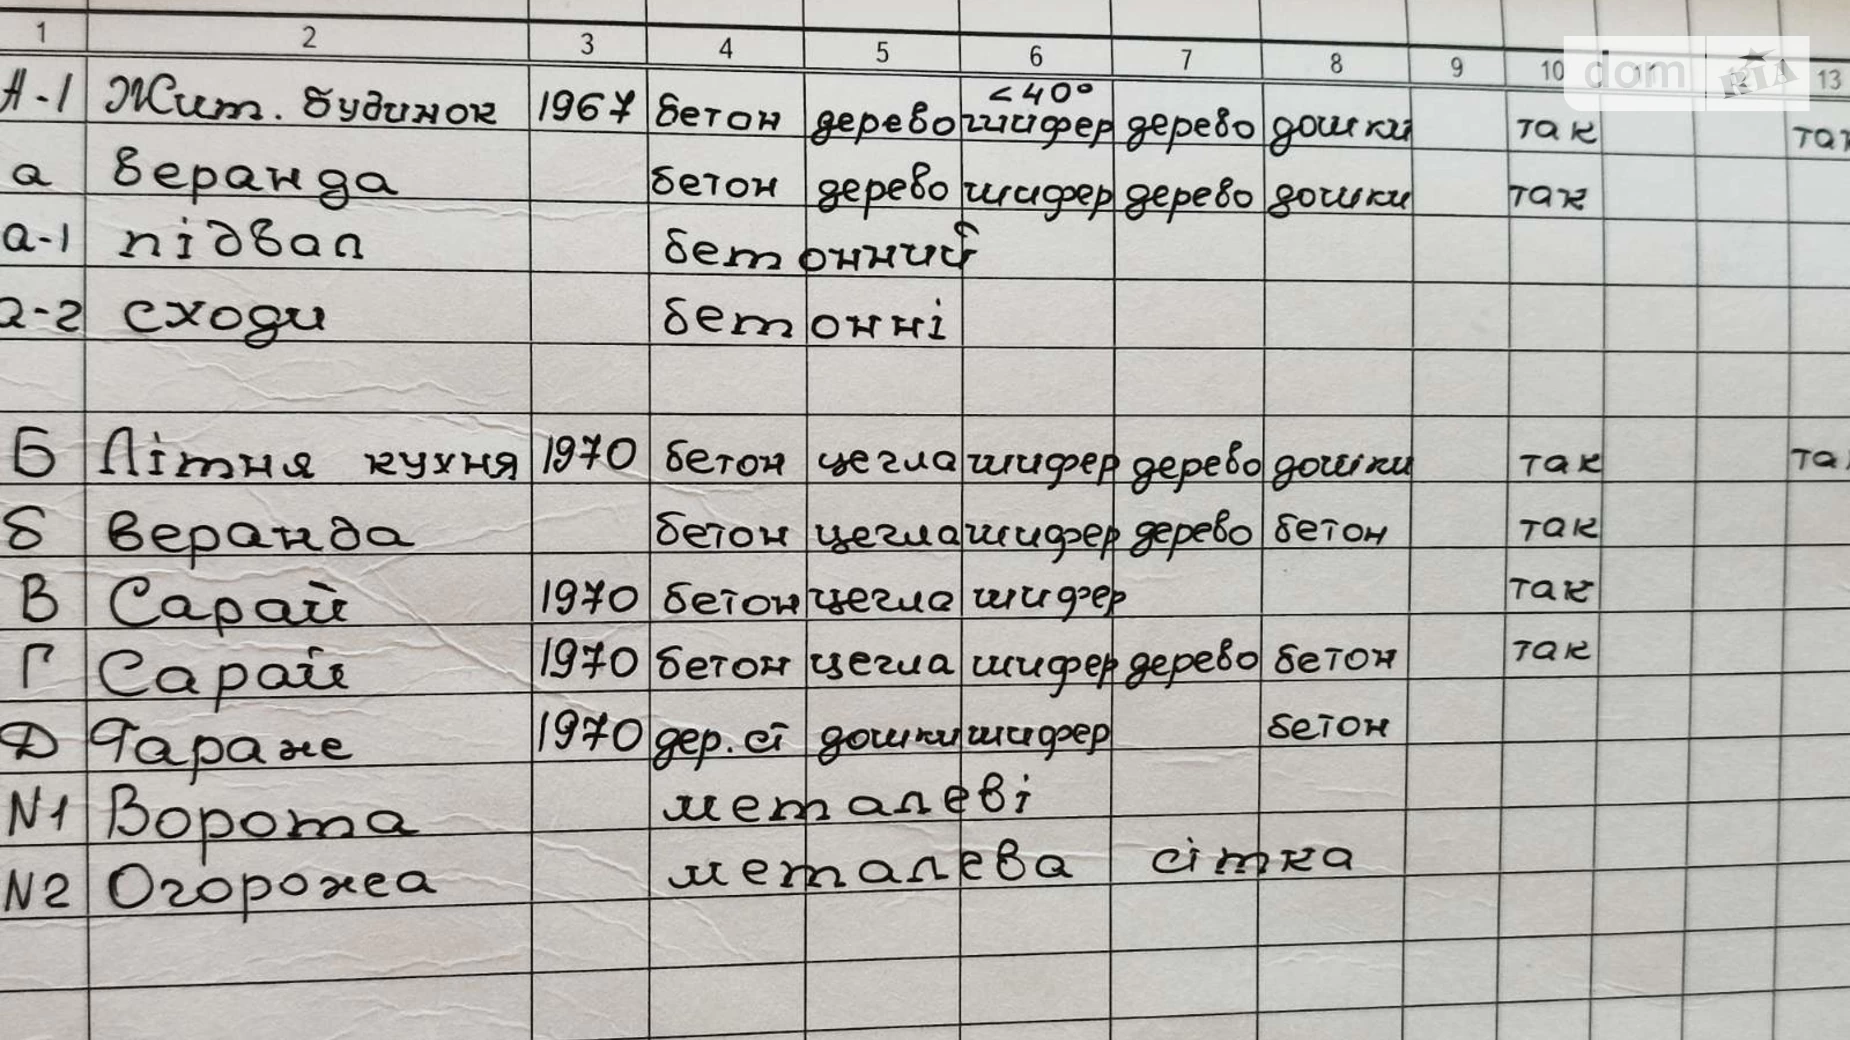 1 2 3 4 5 6 7 8 9 10 13
dom RIA
<40°
А-1 Жит. будинок 1967 бетон дерево шифер дерево дошки так так
а веранда бетон дерево шифер дерево дошки так
а-1 підвал бетонний
а-2 сходи бетонні
Б Літня кухня 1970 бетон цегла шифер дерево дошки так та
б веранда бетон цегла шифер дерево бетон так
В Сарай 1970 бетон цегла шифер так
Г Сарай 1970 бетон цегла шифер дерево бетон так
Д Гараже 1970 дер. ст дошки шифер бетон
N1 Ворота металеві
N2 Огорожа металева сітка